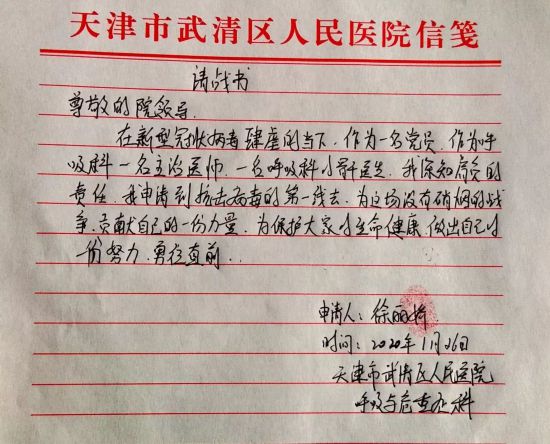 天津市武清区人民医院信笺
请战书
尊敬的院领导:
在新型冠状病毒肆虐的当下,作为一名党员,作为呼
吸科一名主治医师,一名呼吸科骨干医生,我深知肩负的
责任,我申请到抗击病毒的第一线去,为这场没有硝烟的战
争,贡献自己的一份力量,为保护大家的生命健康,做出自己的一
份努力,勇往直前..
申请人:徐丽
时间:2020年1月26日
天津市武清区人民医院
呼吸与危重症科